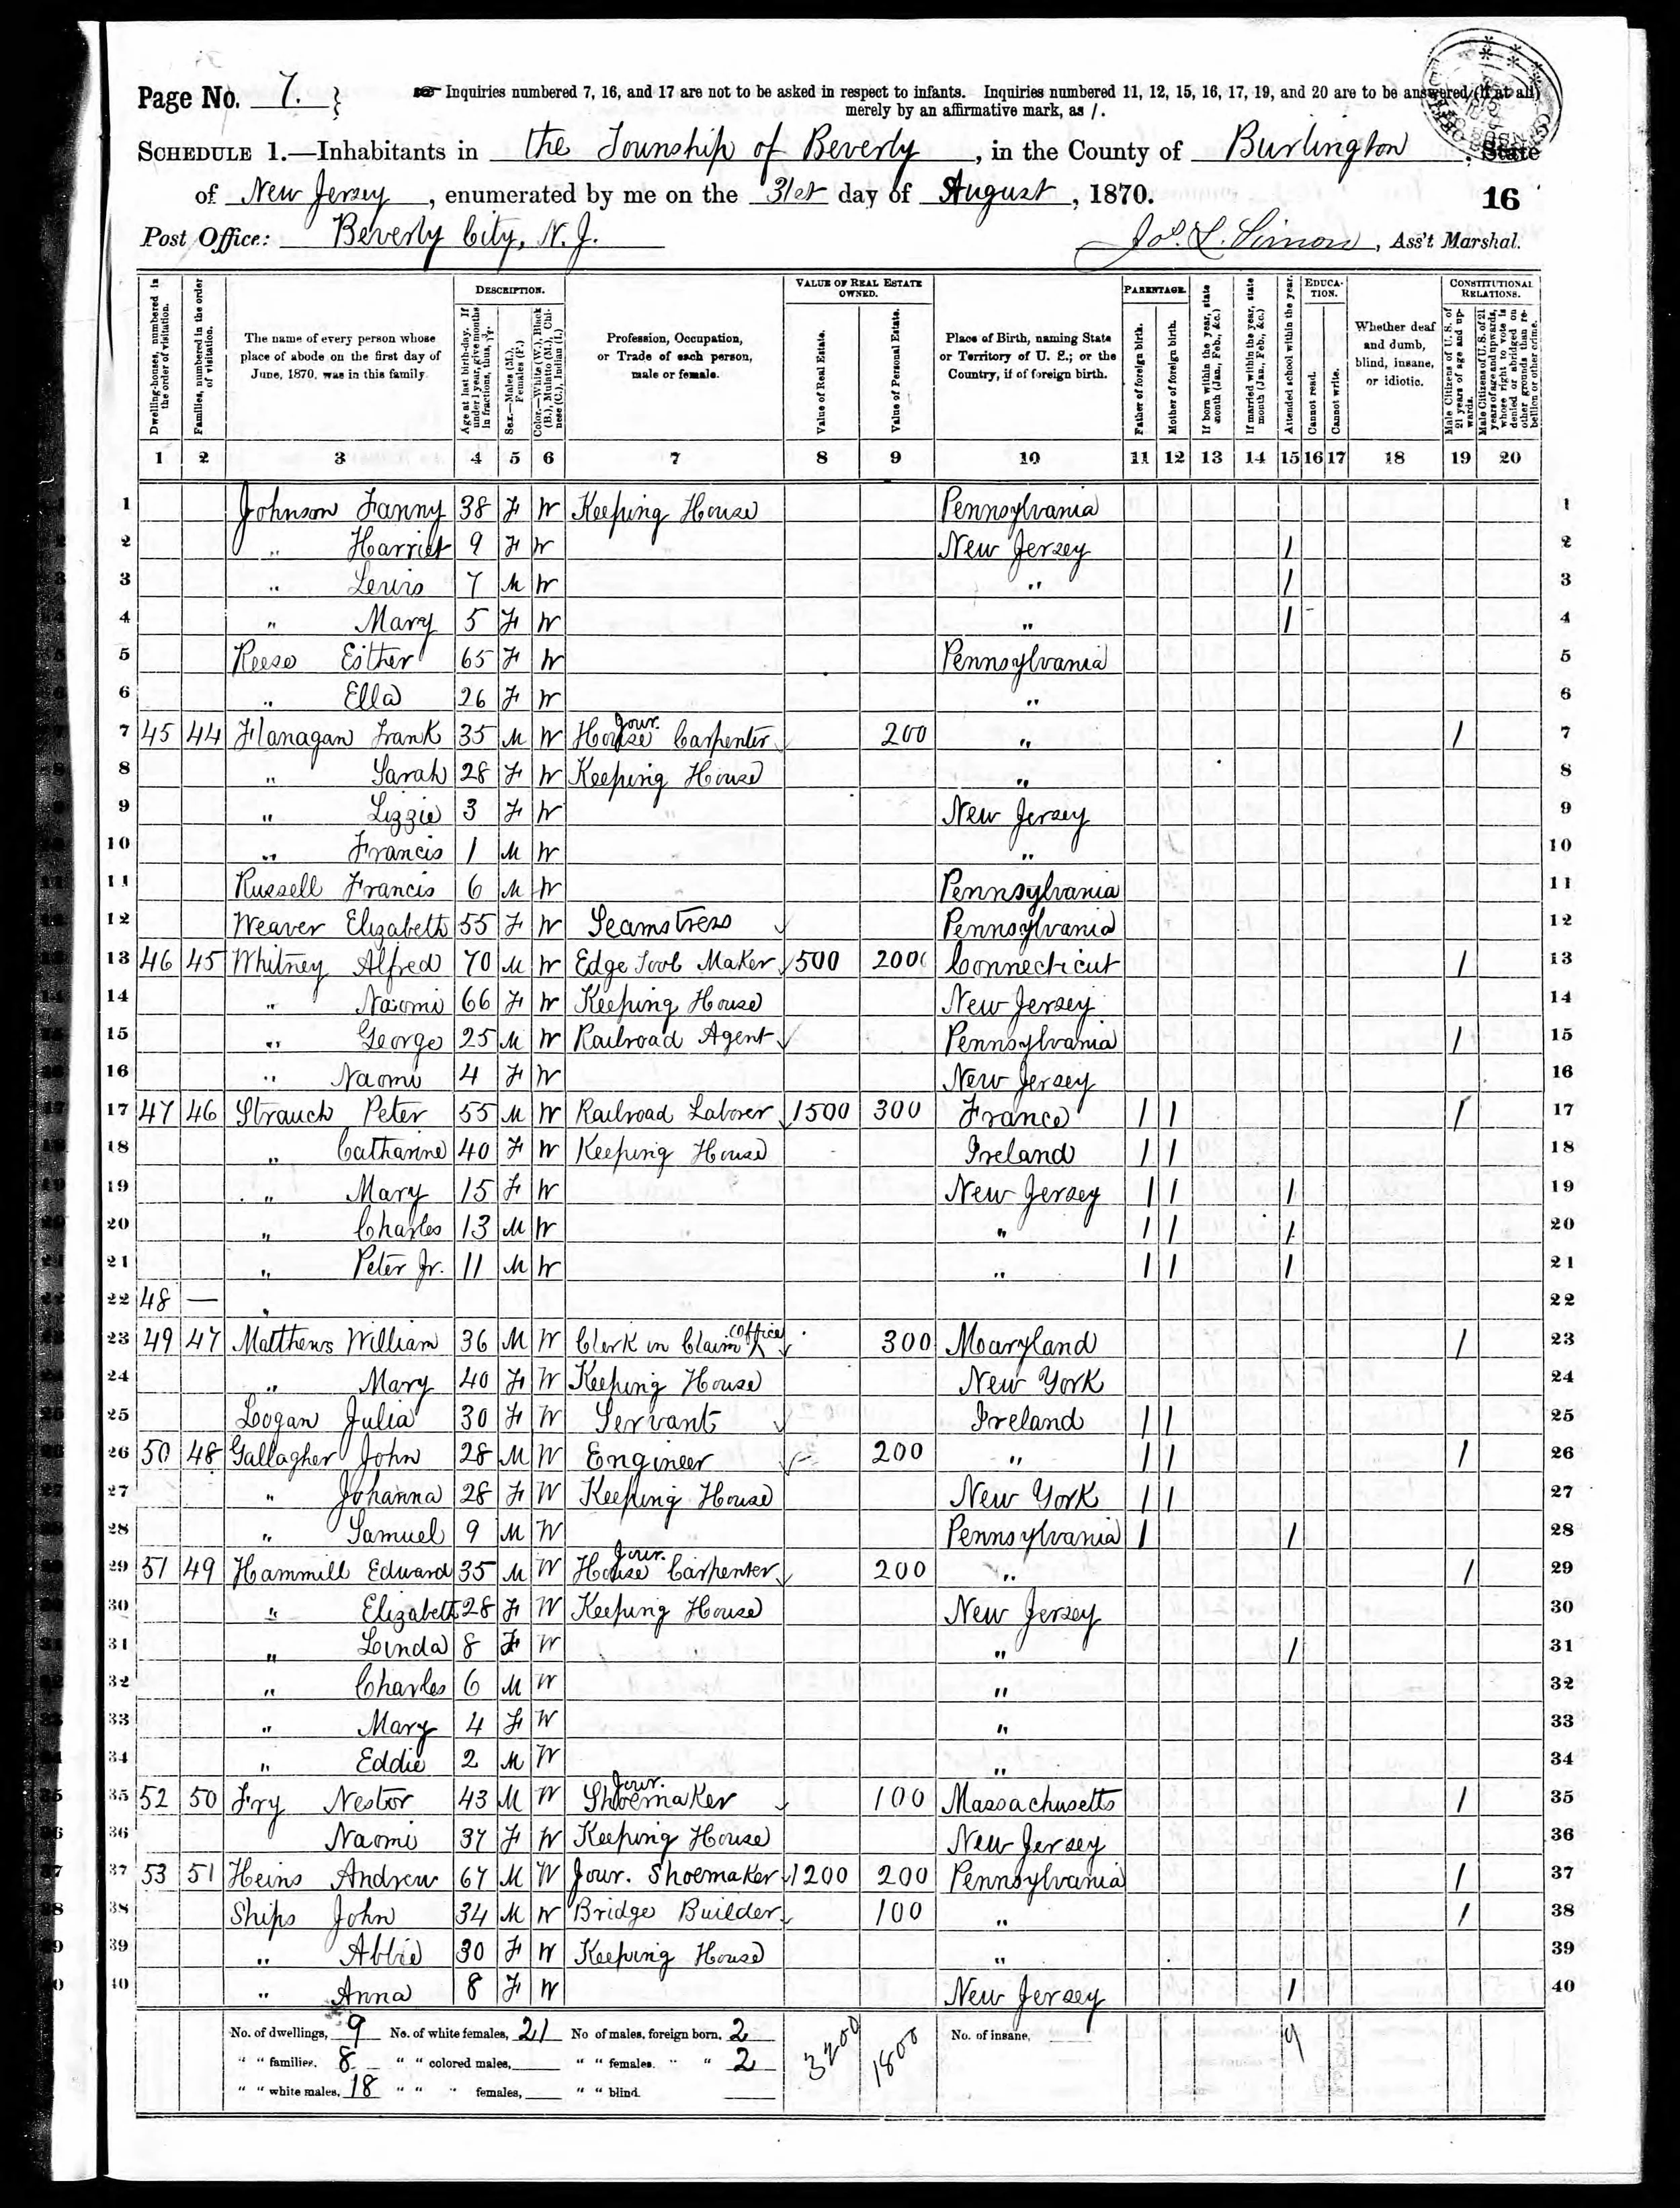 Page No. 7.
Inquiries numbered 7, 16, and 17 are not to be asked in respect to infants. Inquiries numbered 11, 12, 15, 16, 17, 19, and 20 are to be answered (if at all)
merely by an affirmative mark, as /.
SCHEDULE 1.—Inhabitants in the Township of Beverly, in the County of Burlington, State
of New Jersey, enumerated by me on the 31st day of August, 1870.
16
Post Office: Beverly City, N. J.
Jos. L. Simon, Ass't Marshal.
DESCRIPTION. VALUE OF REAL ESTATE OWNED. PARENTAGE. EDUCATION. CONSTITUTIONAL RELATIONS.
Dwelling-houses, numbered in the order of visitation.
Families, numbered in the order of visitation.
The name of every person whose place of abode on the first day of June, 1870, was in this family.
Age at last birth-day. If under 1 year, give months in fractions, thus, 3/12.
Sex.—Males (M.), Females (F.)
Color.—White (W.), Black (B.), Mulatto (M.), Chinese (C.), Indian (I.)
Profession, Occupation, or Trade of each person, male or female.
Value of Real Estate.
Value of Personal Estate.
Place of Birth, naming State or Territory of U. S.; or the Country, if of foreign birth.
Father of foreign birth.
Mother of foreign birth.
If born within the year, state month (Jan., Feb., &c.)
If married within the year, state month (Jan., Feb., &c.)
Attended school within the year.
Cannot read.
Cannot write.
Whether deaf and dumb, blind, insane, or idiotic.
Male Citizens of U. S. of 21 years of age and upwards.
Male Citizens of U. S. of 21 years of age and upwards, whose right to vote is denied or abridged on other grounds than rebellion or other crime.
1 2 3 4 5 6 7 8 9 10 11 12 13 14 15 16 17 18 19 20
1 Johnson Fanny 38 F W Keeping House Pennsylvania 1
2 " Harriet 9 F W New Jersey / 2
3 " Lewis 7 M W " / 3
4 " Mary 5 F W " / 4
5 Reese Esther 65 F W Pennsylvania 5
6 " Ella 26 F W " 6
7 45 44 Flanagan Frank 35 M W Jour. House Carpenter 200 " / 7
8 " Sarah 28 F W Keeping House " 8
9 " Lizzie 3 F W New Jersey 9
10 " Francis 1 M W " 10
11 Russell Francis 6 M W Pennsylvania 11
12 Weaver Elizabeth 55 F W Seamstress Pennsylvania 12
13 46 45 Whitney Alfred 70 M W Edge Tool Maker 500 200 Connecticut / 13
14 " Naomi 66 F W Keeping House New Jersey 14
15 " George 25 M W Railroad Agent Pennsylvania / 15
16 " Naomi 4 F W New Jersey 16
17 47 46 Strauch Peter 55 M W Railroad Laborer 1500 300 France / / / 17
18 " Catharine 40 F W Keeping House Ireland / / 18
19 " Mary 15 F W New Jersey / / / 19
20 " Charles 13 M W " / / / 20
21 " Peter Jr. 11 M W " / / / 21
22 48 — " 22
23 49 47 Matthews William 36 M W Clerk in Claim Office 300 Maryland / 23
24 " Mary 40 F W Keeping House New York 24
25 Logan Julia 30 F W Servant Ireland / / 25
26 50 48 Gallagher John 28 M W Engineer 200 " / / / 26
27 " Johanna 28 F W Keeping House New York / / 27
28 " Samuel 9 M W Pennsylvania / / 28
29 51 49 Hammill Edward 35 M W Jour. House Carpenter 200 " / 29
30 " Elizabeth 28 F W Keeping House New Jersey 30
31 " Linda 8 F W " / 31
32 " Charles 6 M W " 32
33 " Mary 4 F W " 33
34 " Eddie 2 M W " 34
35 52 50 Fry Nestor 43 M W Jour. Shoemaker 100 Massachusetts / 35
36 Naomi 37 F W Keeping House New Jersey 36
37 53 51 Heins Andrew 67 M W Jour. Shoemaker 1200 200 Pennsylvania / 37
38 Ships John 34 M W Bridge Builder 100 " / 38
39 " Abbie 30 F W Keeping House " 39
40 " Anna 8 F W New Jersey / 40
No. of dwellings, 9 No. of white females, 21 No of males, foreign born, 2 3200 1800 No. of insane, 9
" " families, 8 " " colored males, " " females, " " 2
" " white males, 18 " " " females, " " blind.